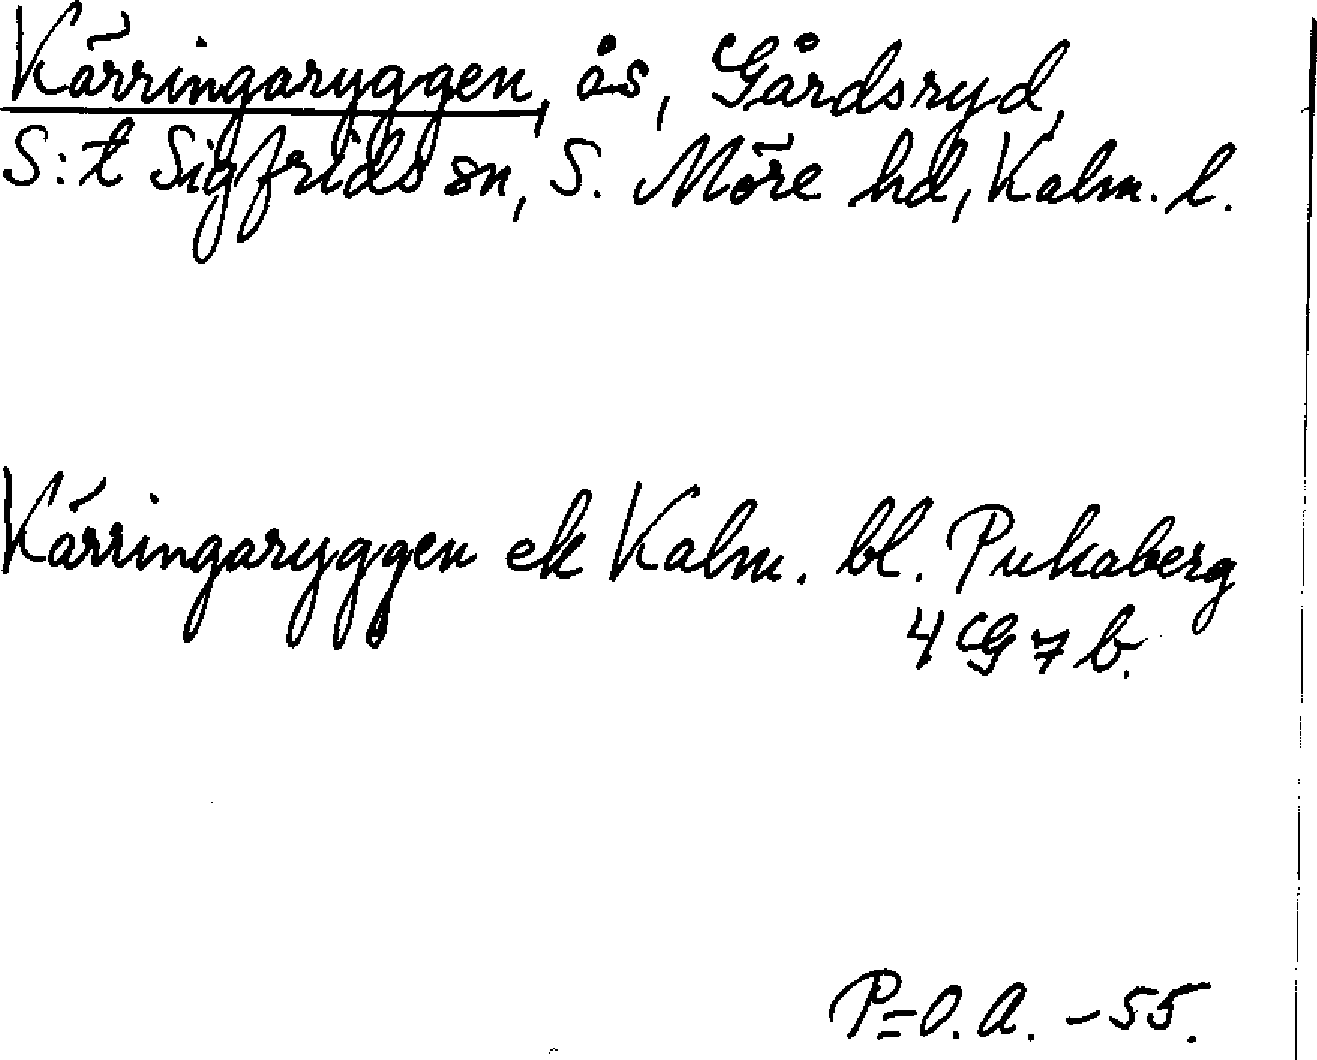 Kärringaryggen, ås, Gårdsryd,
S:t Sigfrids sn, S. Möre hd, Kalm. l.
Kärringaryggen ek Kalm. bl. Pukaberg
4 G 7 b.
P=O. A. -55.